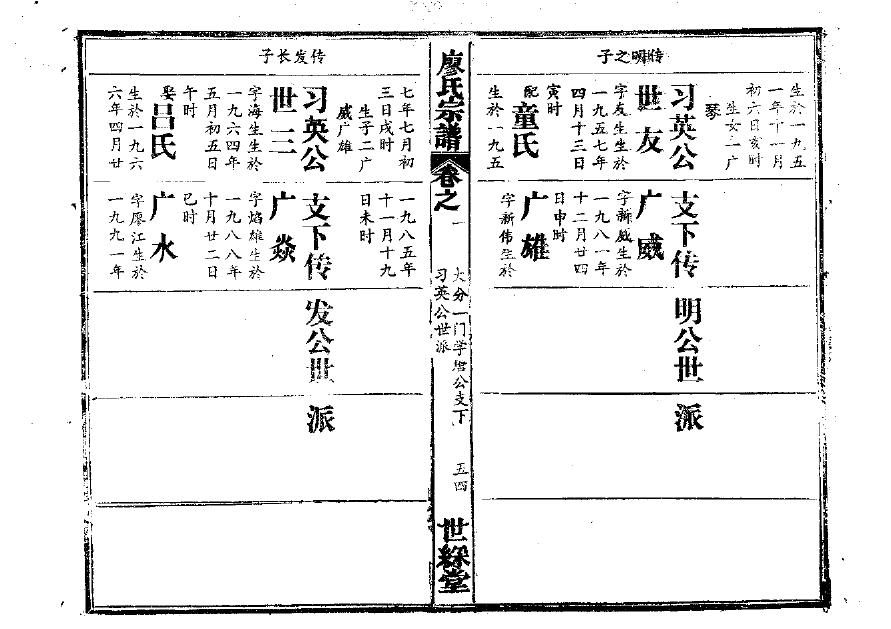 传明之子
生於一九五
一年十一月
初六日亥时
生女二广
琴
习英公
世友
字友生生於
一九五七年
四月十三日
寅时
配
童氏
生於一九五
支下传
广威
字新威生於
一九八一年
十二月廿四
日申时
广雄
字新伟生於
明公世
派
廖氏宗谱
卷之
一
大分一门学
公支下
习英公世派
五四
世綵堂
传发长子
七年七月初
三日戌时
生子二广
威广雄
习英公
世三
字海生生於
一九六四年
五月初五日
午时
娶
吕氏
生於一九六
六年四月廿
一九八五年
十一月十九
日未时
支下传
广焱
字焰雄生於
一九八八年
十月廿二日
巳时
广水
字廖江生於
一九九一年
发公世
派